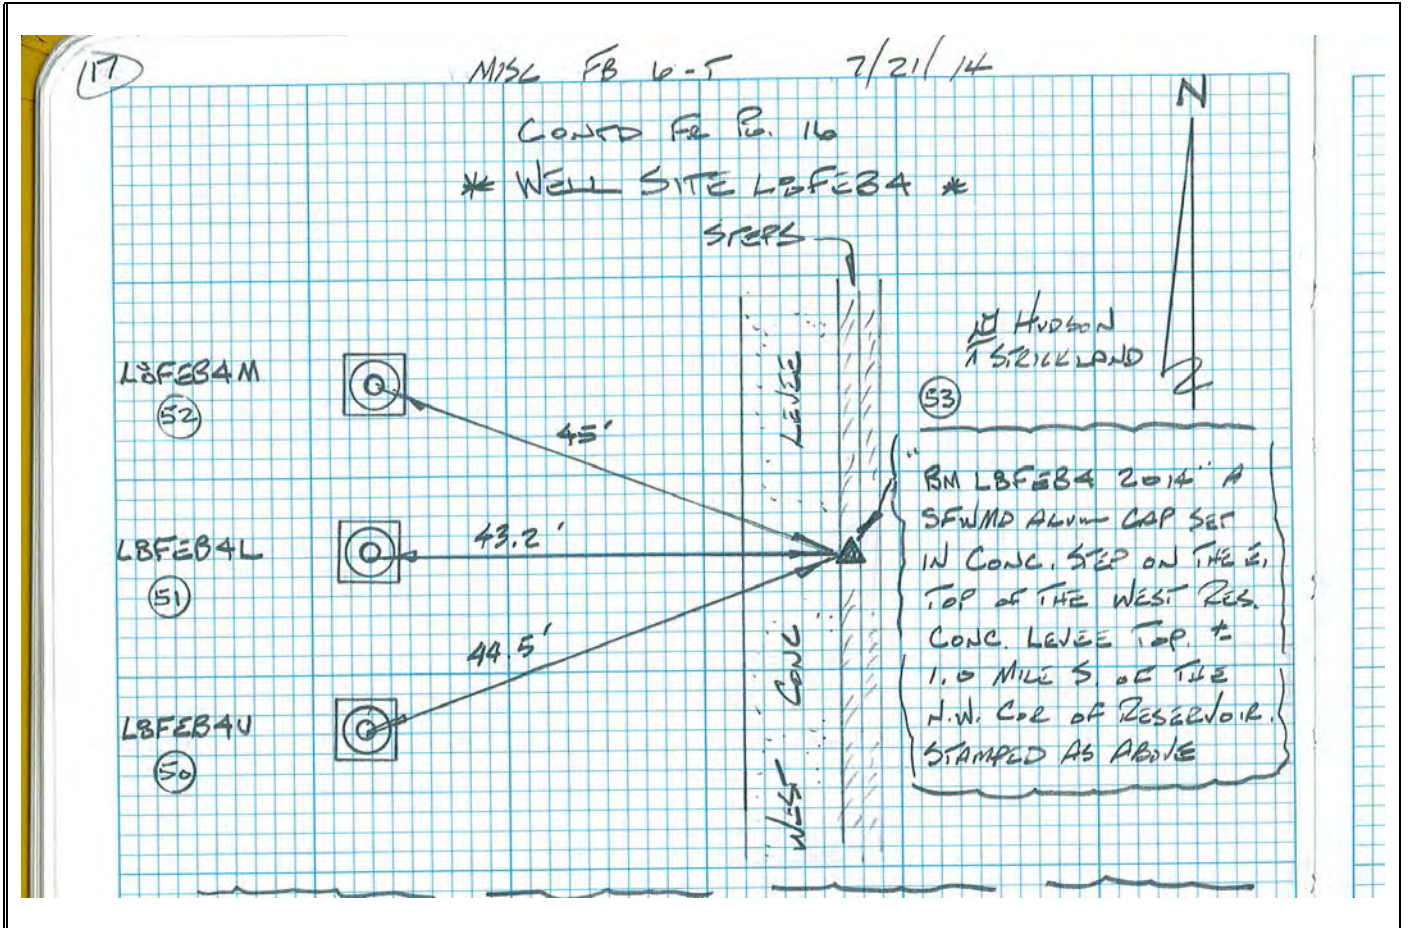 17
MISC FB 6-T 7/21/14
CONTD FR PG. 16
* WELL SITE L8FEB4 *
STEPS
N
HUDSON
STRICKLAND
53
L8FEB4M
52
45'
LEVEE
L8FEB4L
51
43.2'
L8FEB4U
50
44.5'
WEST CONC
"BM L8FEB4 2014" A
SFWMD ALUM CAP SET
IN CONC. STEP ON THE E.
TOP OF THE WEST RES.
CONC. LEVEE TOP. ±
1.0 MILE S. OF THE
N.W. COR OF RESERVOIR.
STAMPED AS ABOVE